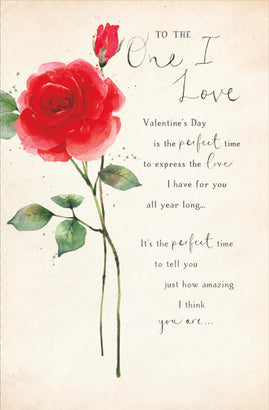 TO THE
One I
Love
Valentine's Day
is the perfect time
to express the love
I have for you
all year long...
It's the perfect time
to tell you
just how amazing
I think
you are...